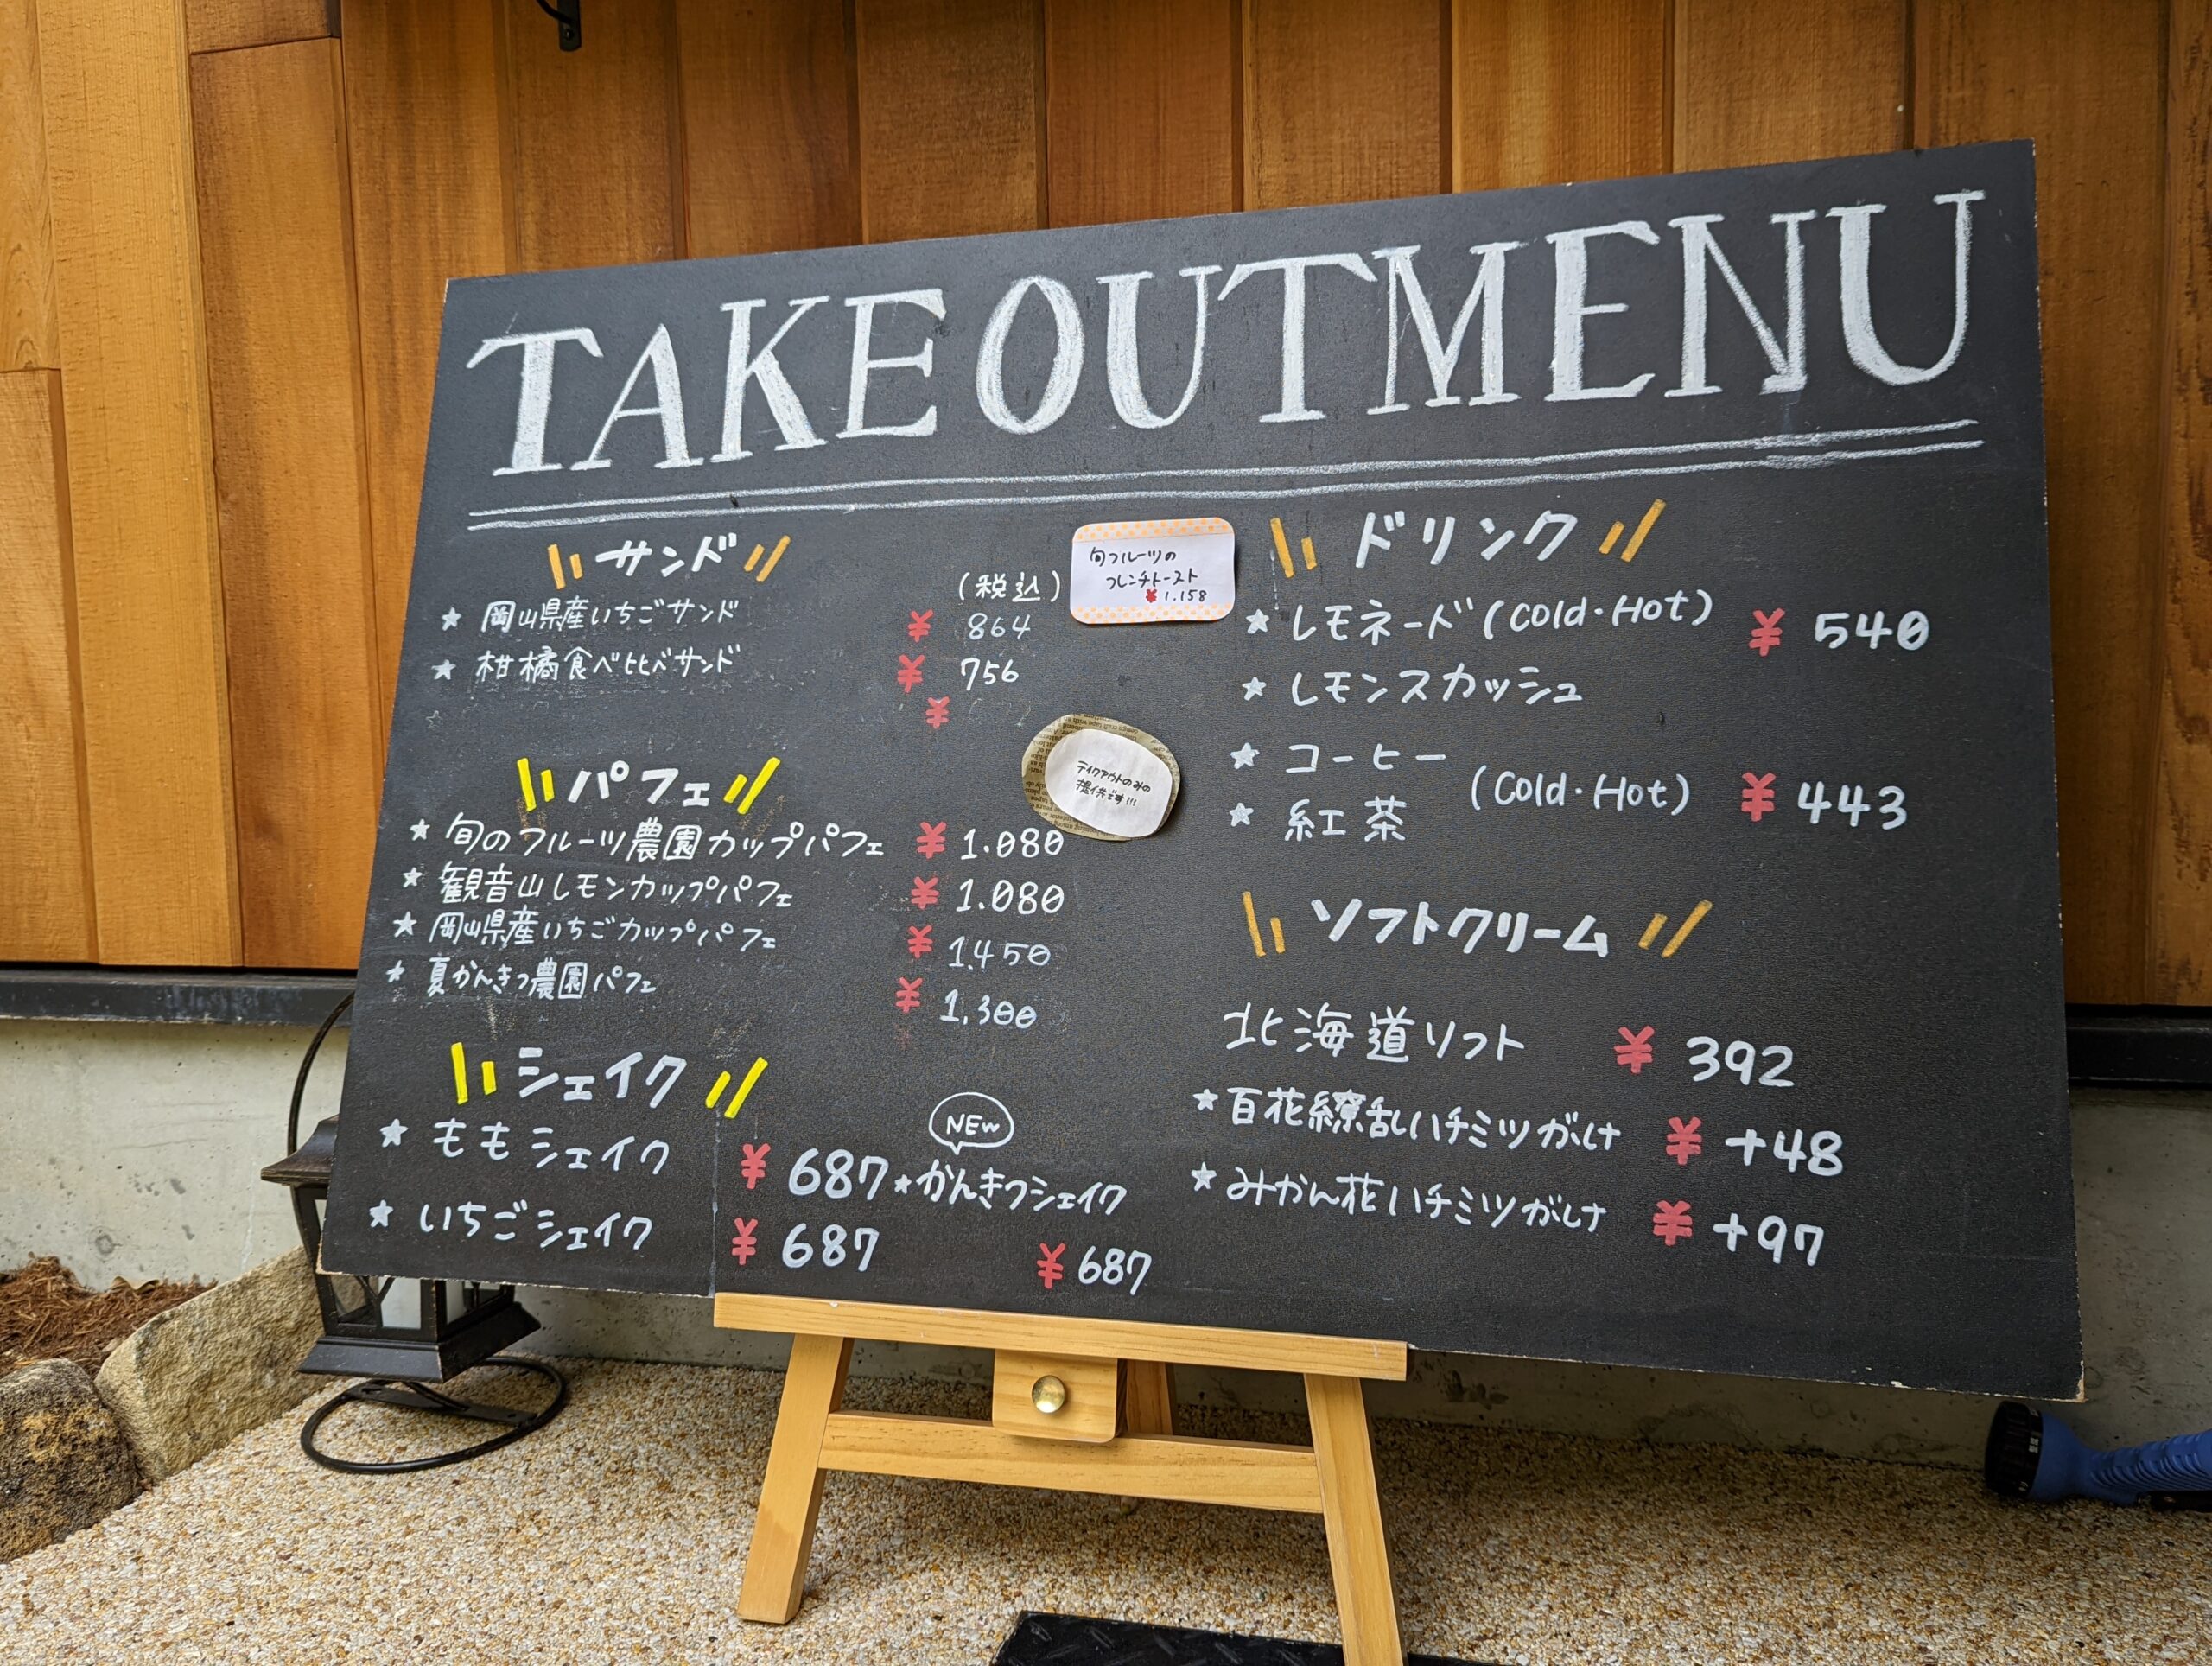 TAKE OUT MENU
サンド
(税込)
★ 岡山県産いちごサンド ¥ 864
★ 柑橘食べ比べサンド ¥ 756
¥
旬フルーツの
フレンチトースト
¥1,158
パフェ
★ 旬のフルーツ農園カップパフェ ¥ 1.080
★ 観音山レモンカップパフェ ¥ 1.080
★ 岡山県産いちごカップパフェ ¥ 1,450
★ 夏かんきつ農園パフェ ¥ 1,300
テイクアウトのみの
提供です!!!
シェイク
★ ももシェイク ¥ 687
★ いちごシェイク ¥ 687
NEW
★かんきつシェイク
¥ 687
ドリンク
★ レモネード (Cold・Hot) ¥ 540
★ レモンスカッシュ
★ コーヒー
★ 紅茶
(Cold・Hot) ¥ 443
ソフトクリーム
北海道ソフト ¥ 392
★ 百花繚乱ハチミツがけ ¥ +48
★ みかん花ハチミツがけ ¥ +97